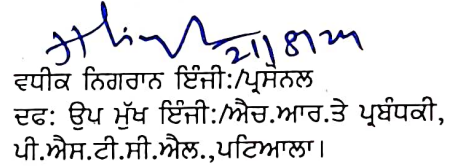 21/8/24
ਵਧੀਕ ਨਿਗਰਾਨ ਇੰਜੀ:/ਪ੍ਰਸੋਨਲ
ਦਫ: ਉਪ ਮੁੱਖ ਇੰਜੀ:/ਐਚ.ਆਰ.ਤੇ ਪ੍ਰਬੰਧਕੀ,
ਪੀ.ਐਸ.ਟੀ.ਸੀ.ਐਲ.,ਪਟਿਆਲਾ।